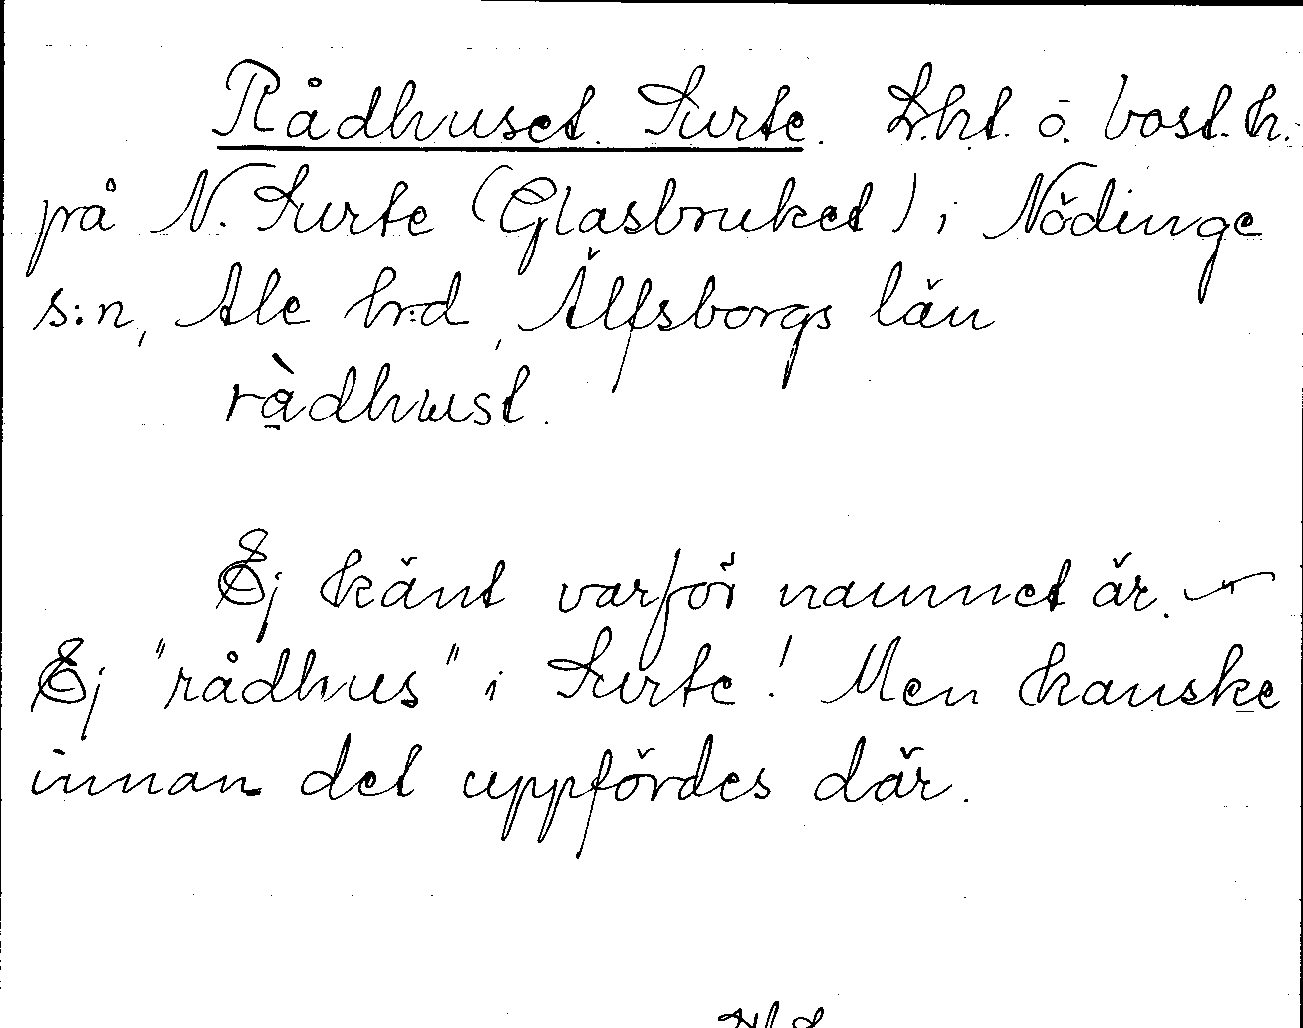 Rådhuset. Surte. Lht. o. bost.h.
på N. Surte (Glasbruket) i Nödinge
s:n, Ale hrd, Älfsborgs län
ràdhust.
Ej känt varför namnet är.
Ej "rådhus" i Surte! Men kanske
innan det uppfördes där.